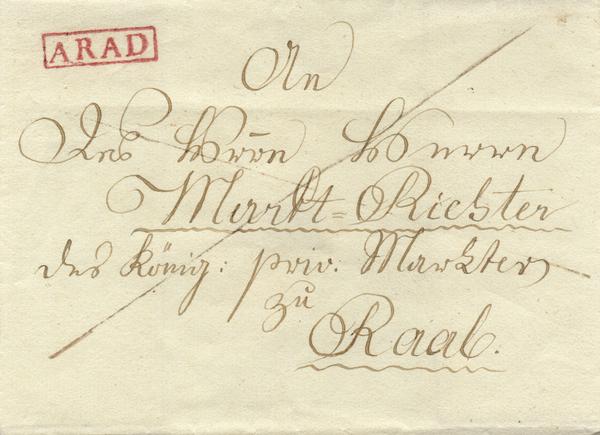 ARAD
An
Des Hrrn Herrn
Markt=Richter
des König: priv: Markter
zu
Raab.